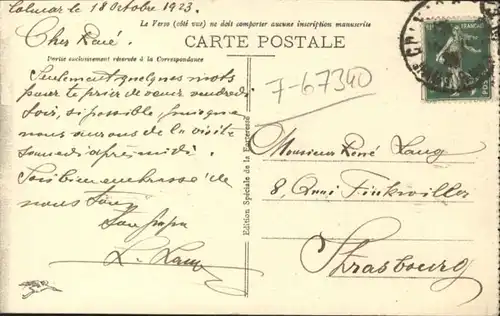 Colmar le 18 Octobre 1923.
Le Verso (côté vue) ne doit comporter aucune inscription manuscrite
Cher René.
CARTE POSTALE
Partie exclusivement réservée à la Correspondance
Seulement quelques mots
pour te prier de venir vendredi
soir, si possible puisque
nous aurons de la visite
samedi après midi.
Sois bien embrassé de
nous tous
Ton papa
L. Laug
Edition Spéciale de la Forteresse
7-67340
Monsieur René Laug
8, Quai Finkwiller
Strasbourg